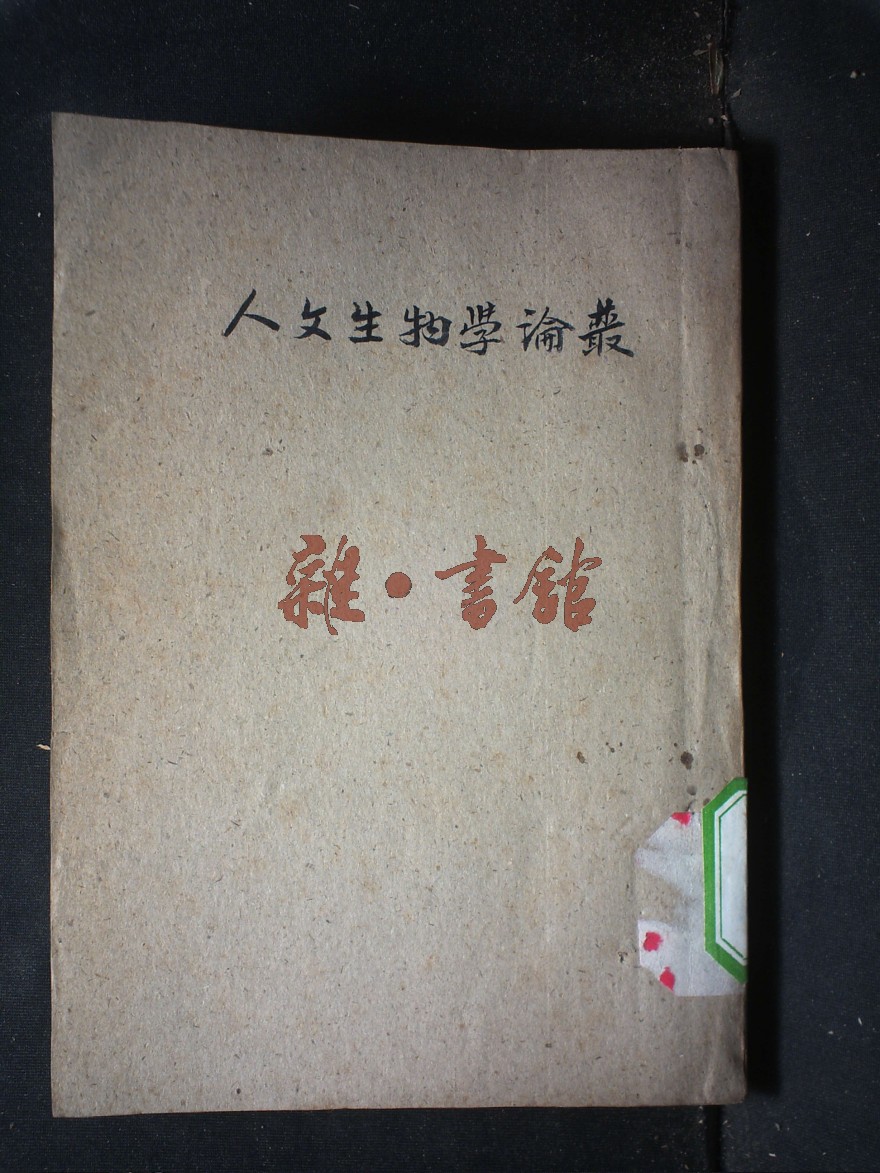 人文生物學論叢
雜·書館